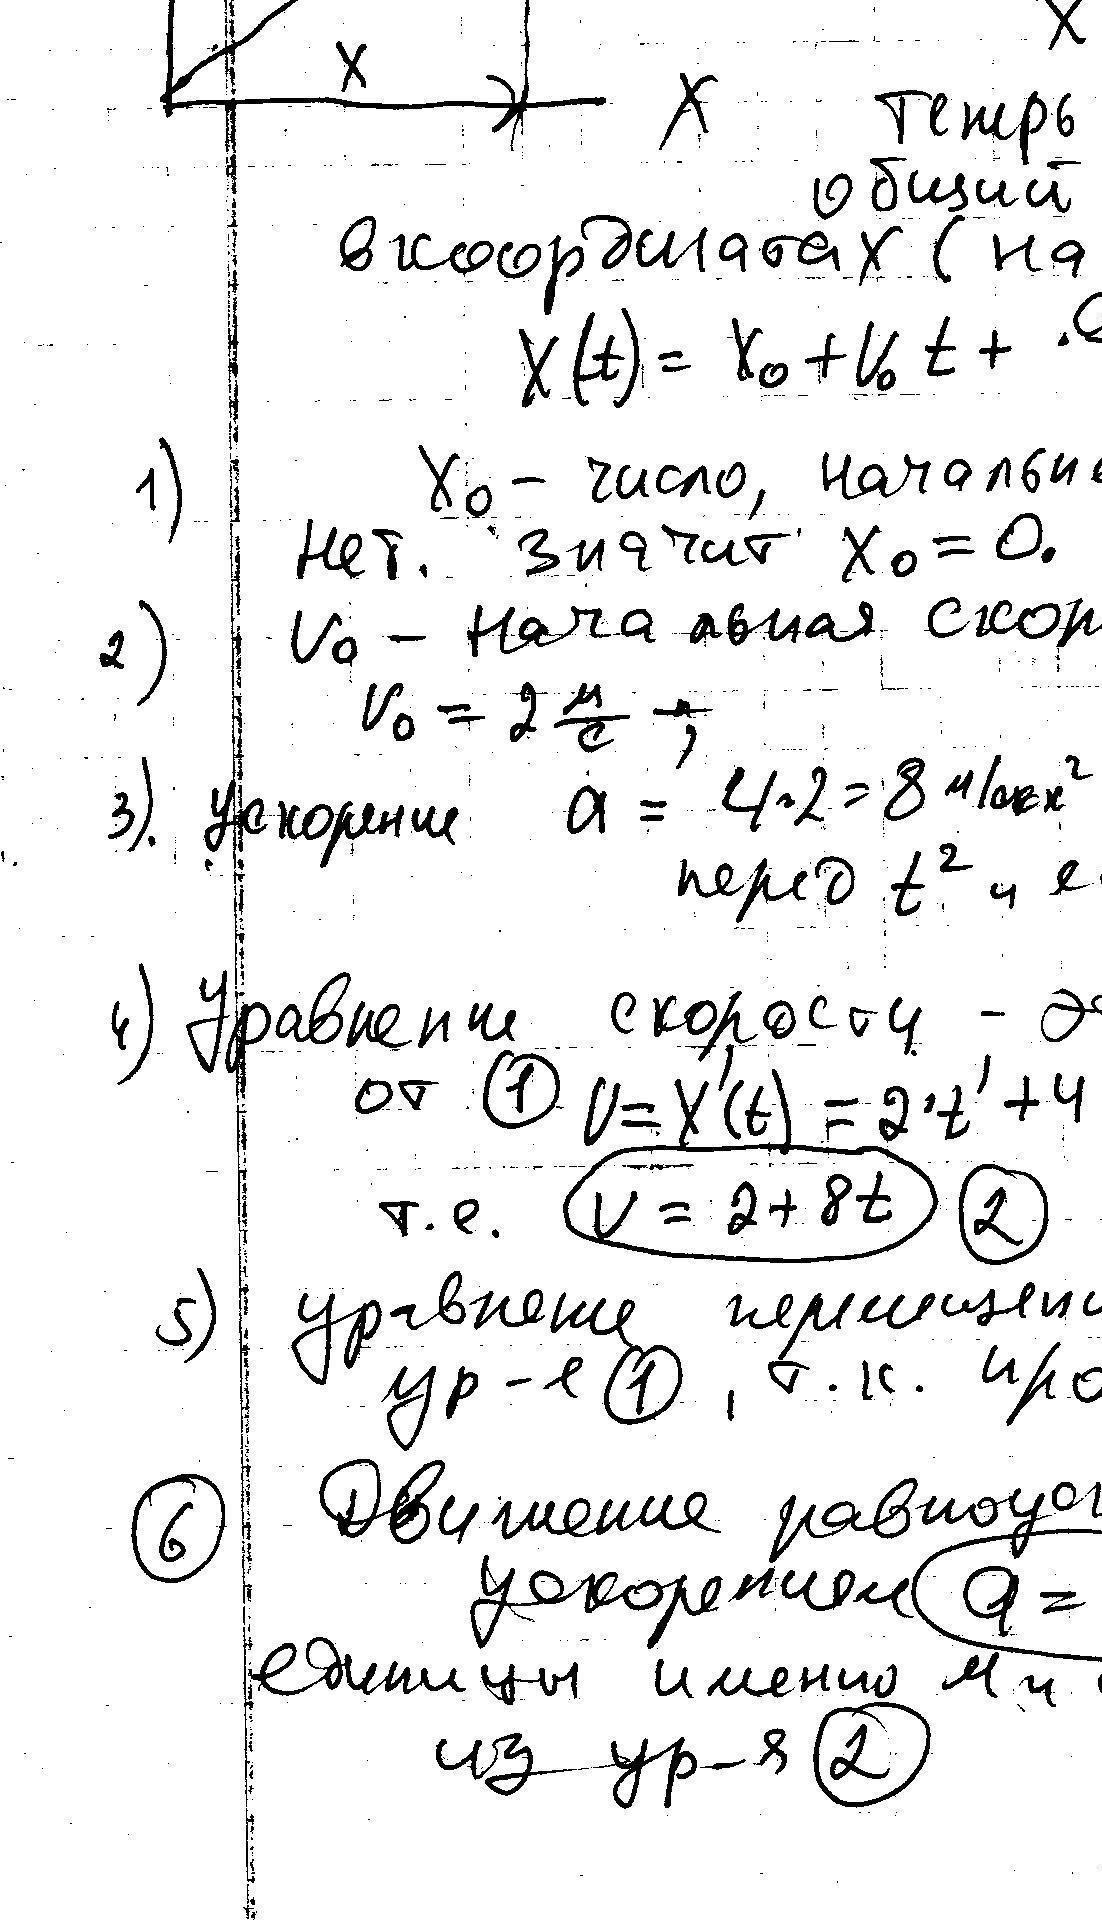 X
X
X
теперь
общий
в координатах (на
X(t) = X₀ + V₀ t +
1) X₀ – число, начальн
нет. значит X₀ = 0.
2) V₀ – начальная скор
V₀ = 2 м/с ;
3). ускорение a = 4·2 = 8 м/сек²
перед t² и е
4) Уравнение скорости –
от ① V = X'(t) = 2·t' + 4
т.е. V = 2 + 8t ②
5) уравнение перемещени
ур-е ①, т.к. про
⑥ Движение равноус
ускорением a =
единицы именно м и
из ур-я ②